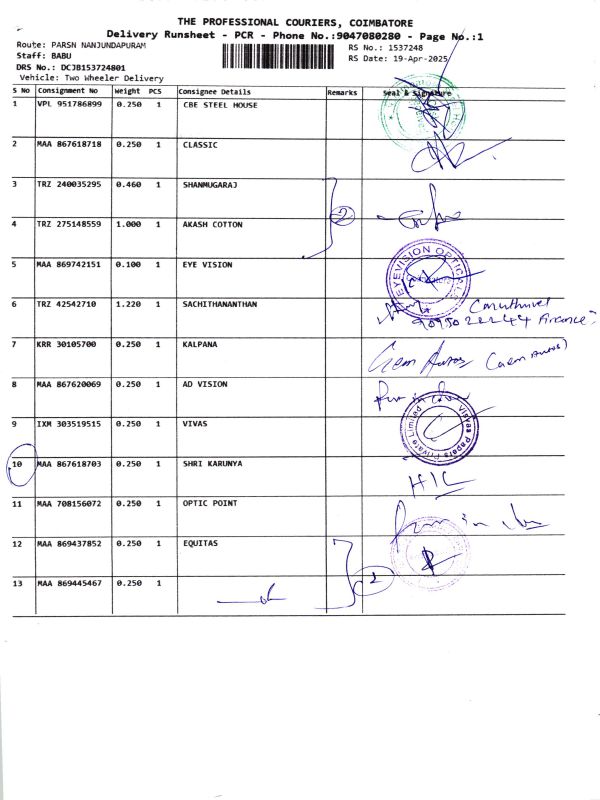 THE PROFESSIONAL COURIERS, COIMBATORE
Delivery Runsheet - PCR - Phone No.:9047080280 - Page No.:1
Route: PARSN NANJUNDAPURAM
RS No.: 1537248
Staff: BABU
RS Date: 19-Apr-2025
DRS No.: DCJB153724801
Vehicle: Two Wheeler Delivery
S No Consignment No Weight PCS Consignee Details Remarks Seal & Signature
1 VPL 951786899 0.250 1 CBE STEEL HOUSE
2 MAA 867618718 0.250 1 CLASSIC
3 TRZ 240035295 0.460 1 SHANMUGARAJ
2
4 TRZ 275148559 1.000 1 AKASH COTTON
5 MAA 869742151 0.100 1 EYE VISION
EYEVISION OPTICALS
6 TRZ 42542710 1.220 1 SACHITHANANTHAN
9095022244
7 KRR 30105700 0.250 1 KALPANA
Gem Auros (Gem Auros)
8 MAA 867620069 0.250 1 AD VISION
9 IXM 303519515 0.250 1 VIVAS
Visvas Papers Private Limited
10 MAA 867618703 0.250 1 SHRI KARUNYA
HIC
11 MAA 708156072 0.250 1 OPTIC POINT
12 MAA 869437852 0.250 1 EQUITAS
2
13 MAA 869445467 0.250 1